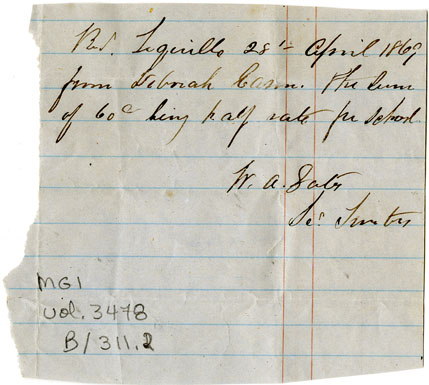 Rec'd. Lequille 28th April 1869
from Deborah Cason. the sum
of 60c being half rate for school
W. A.
Sec
MG1
vol. 3478
B/311.2